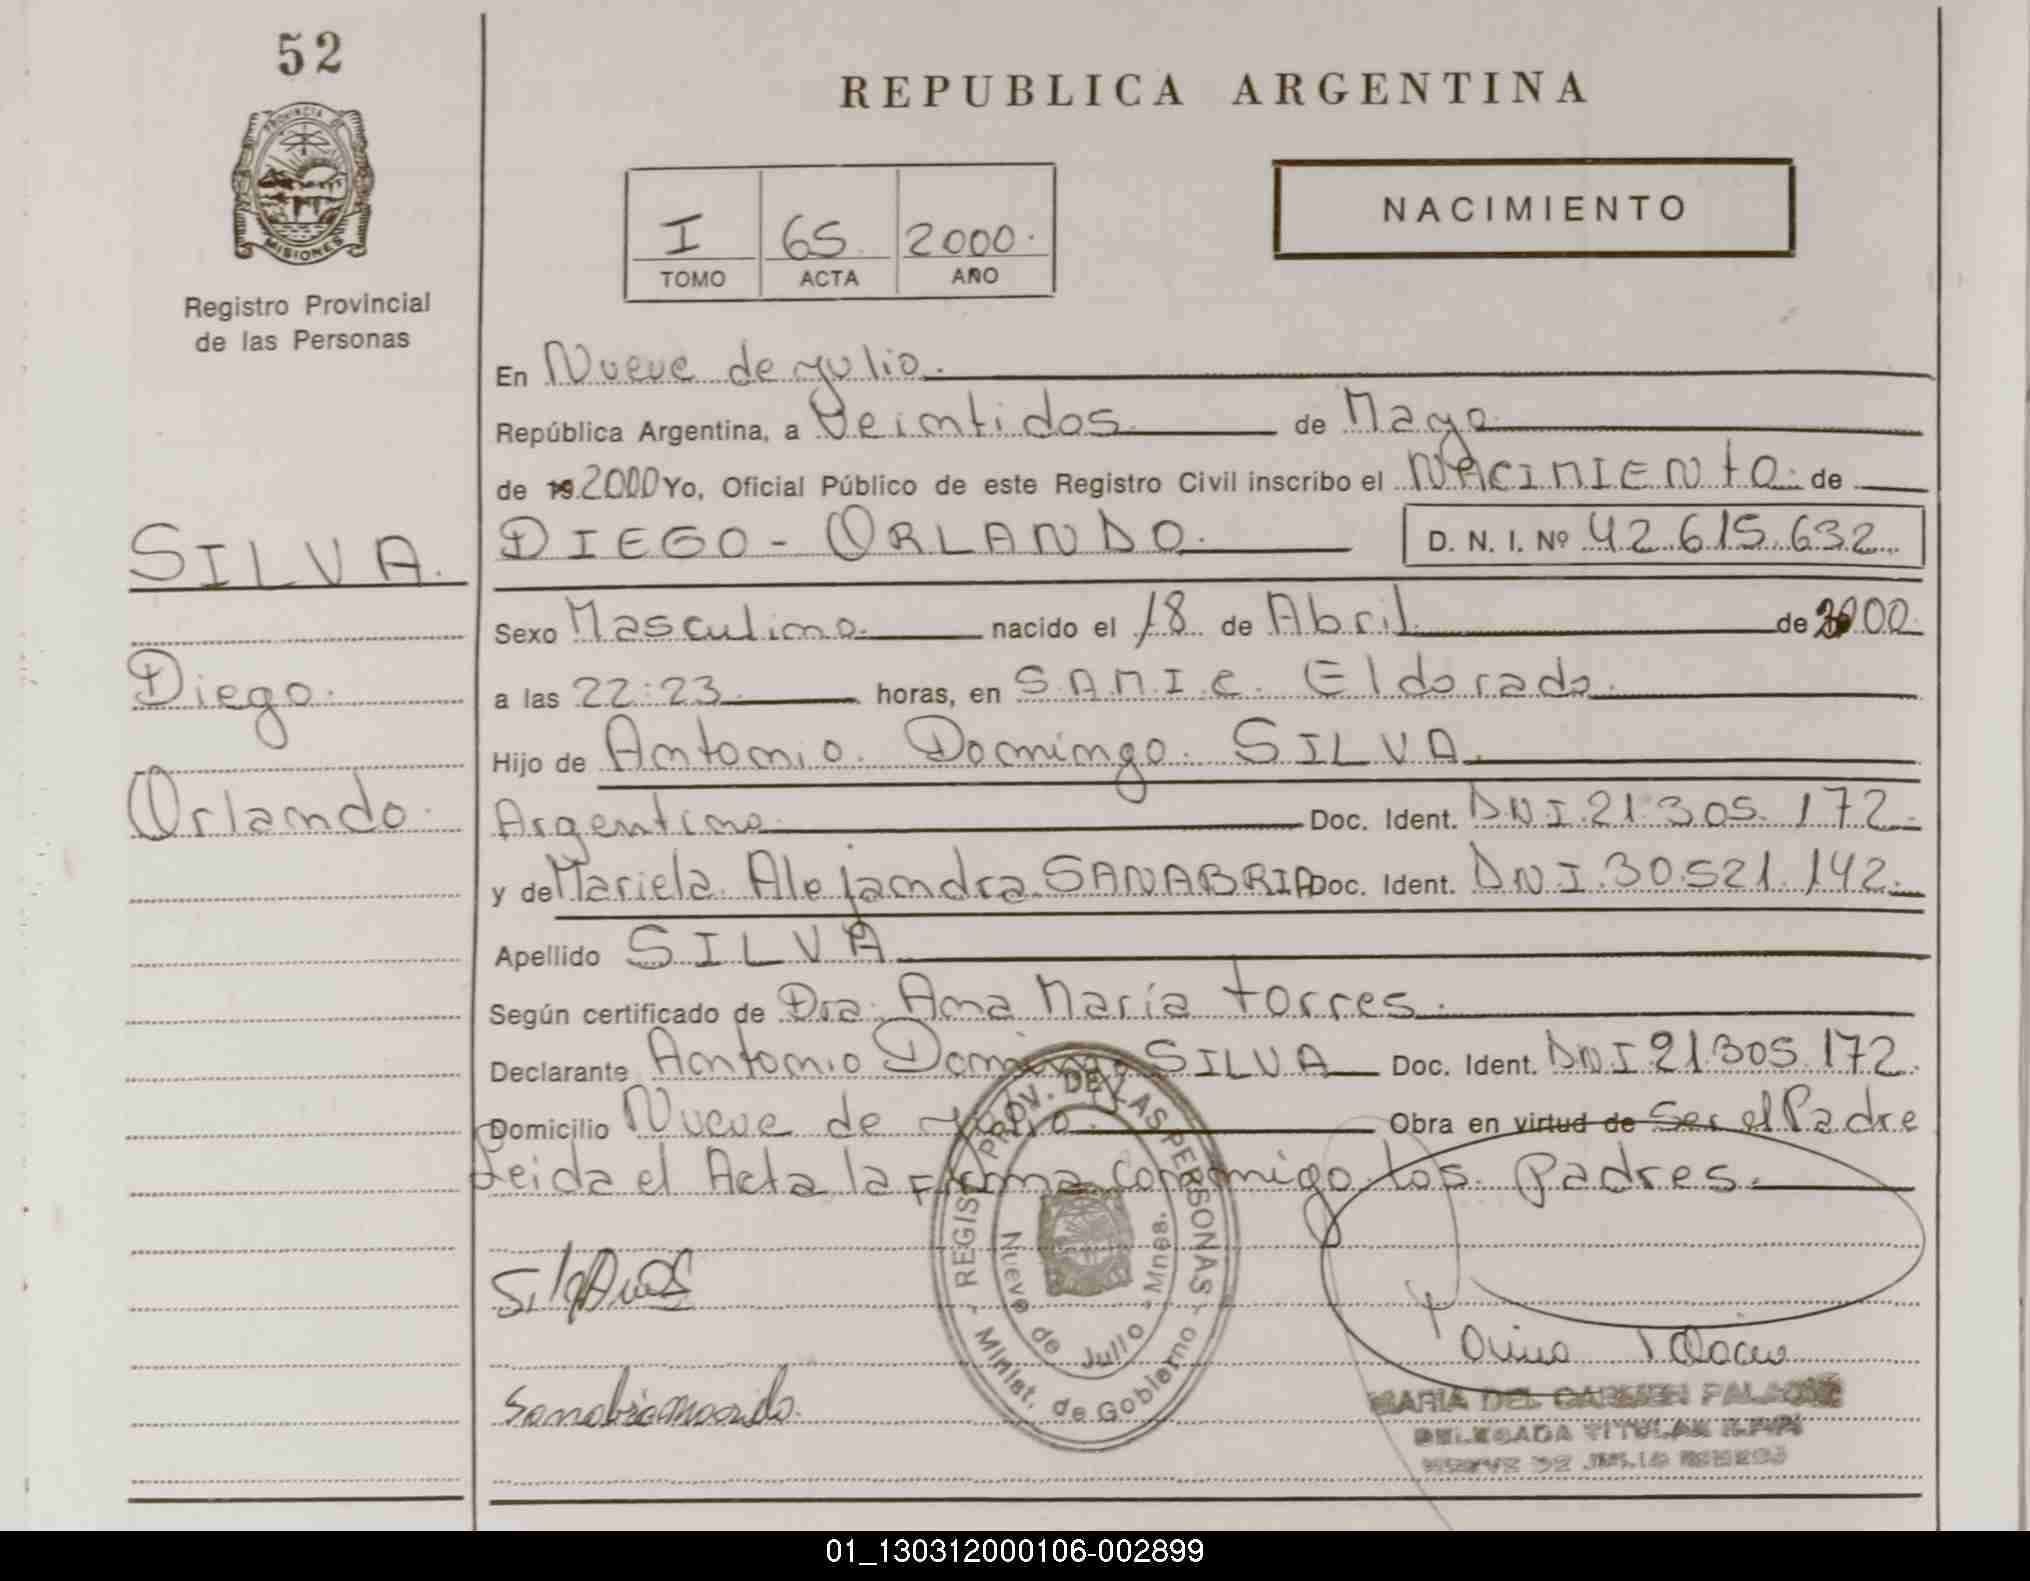 52
PROVINCIA DE
MISIONES
Registro Provincial
de las Personas
REPUBLICA ARGENTINA
NACIMIENTO
I 65 2000.
TOMO ACTA AÑO
SILVA.
Diego.
Orlando.
En Nueve de julio.
República Argentina, a Veintidos. de Mayo.
de 19 2000 Yo, Oficial Público de este Registro Civil inscribo el NACIMIENTO. de
DIEGO - ORLANDO. D. N. I. Nº 42.615.632.
Sexo Masculino. nacido el 18 de Abril de 2000.
a las 22:23. horas, en S.A.M.I.C. Eldorado.
Hijo de Antonio. Domingo. SILVA.
Argentino. Doc. Ident. DNI.21.305.172.
y de Mariela Alejandra SANABRIA Doc. Ident. DNI.30.521.142.
Apellido SILVA
Según certificado de Dra. Ana María Torres.
Declarante Antonio Domingo SILVA Doc. Ident. DNI 21.305.172.
Domicilio Nueve de Julio. Obra en virtud de Ser el Padre
Leida el Acta la Firma conmigo los Padres.
REGIST. PROV. DE LAS PERSONAS
- Minist. de Gobierno -
Nueve de Julio - Mnes.
MARIA DEL CARMEN
DELEGADA TITULAR
NUEVE DE JULIO
01_130312000106-002899